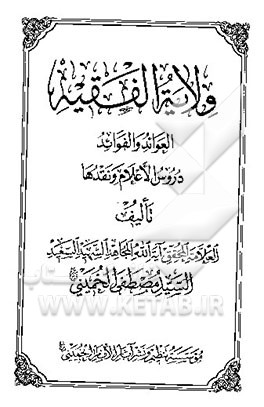 ولاية الفقيه
العوائد والفوائد
دروس الأعلام ونقدها
تأليف
العلامة المحقق آية الله المجاهد الشهيد السعيد
السيد مصطفى الخميني
مؤسسة تنظيم ونشر آثار الإمام الخميني
WWW.KETAB.IR